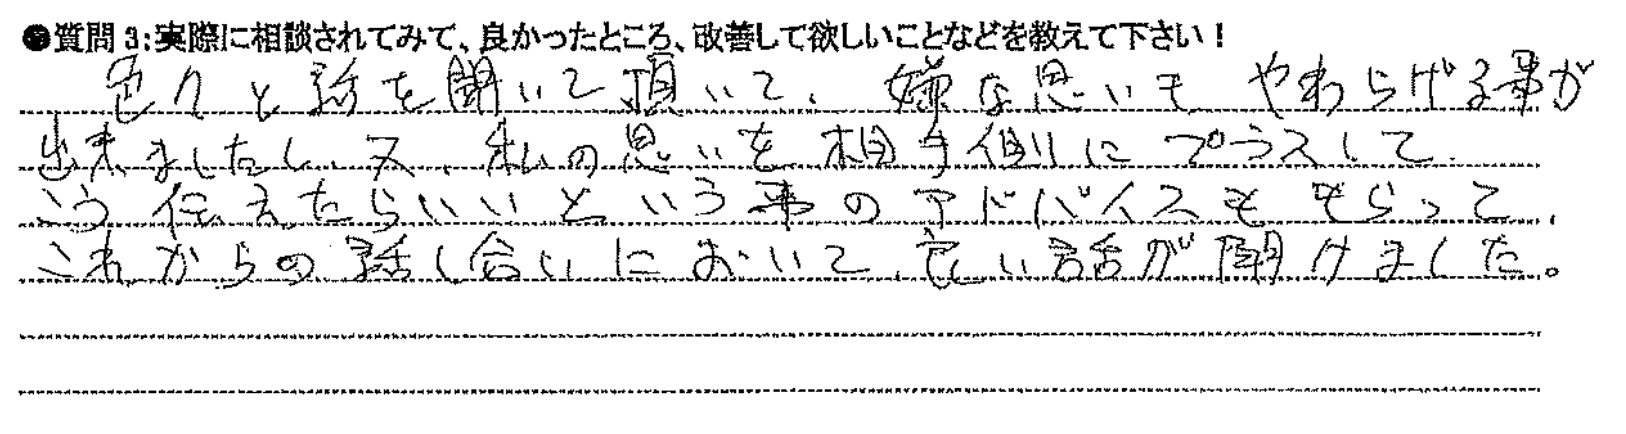 ●質問3:実際に相談されてみて、良かったところ、改善して欲しいことなどを教えて下さい!
色々と話を聞いて頂いて、嫌な思いもやわらげる事が
出来ましたし、又、私の思いを相手側にプラスして
こう伝えたらいいという事のアドバイスももらって、
これからの話し合いにおいて、良い話が聞けました。